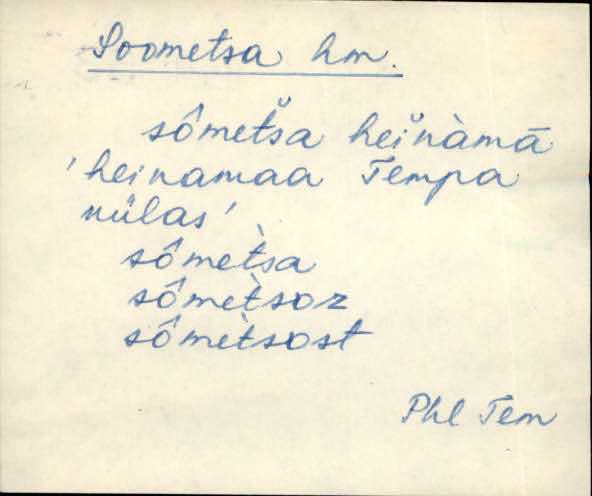 Soometsa hm.
sômeť̆sa heĭnàmā
'heinamaa Tempa
nülas'
sômet̀sa
sômet̀soz
sômet̀sost
Phl Tem